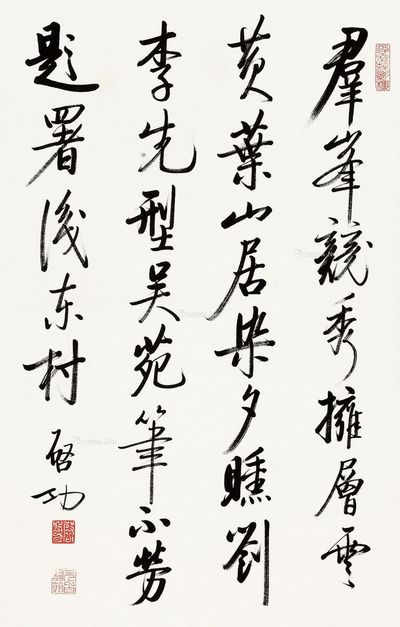 羣峯競秀擁層雲
黄葉山居染夕曛劉
李先型吴苑筆不勞
題署識东村
启功